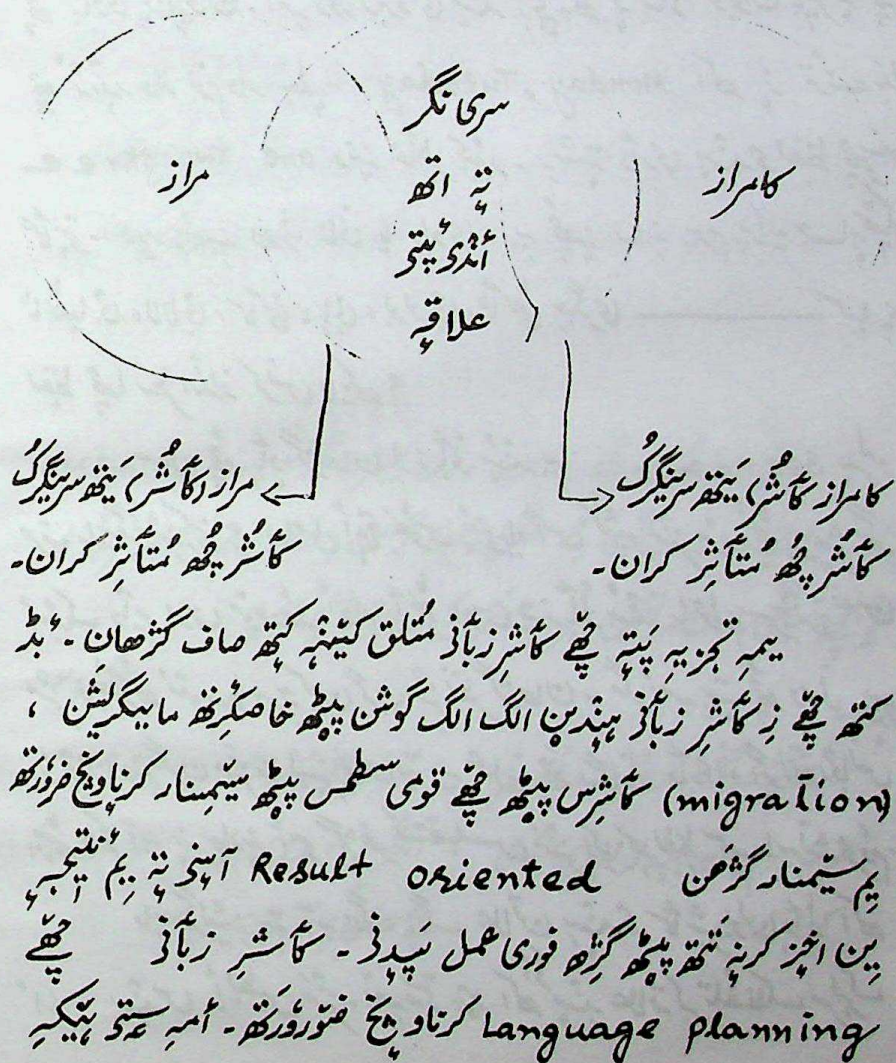 سری نگر
کامراز
تہٕ اتھ
مراز
أنٛدۍ پٔتۍ
علاقہٕ
کامراز کٲشُر، یَتھ سرینگرُک
کٲشُر چھُ مُتٲثِر کران۔
مراز (کٲشُر) یَتھ سرینگرُک
کٲشُر چھُ مُتٲثِر کران۔
یمہِ تجزیہِ پَتہٕ چھےٚ کٲشرِ زبٲنۍ مُتلق کینٛہہ کتھہٕ صاف گژھان۔ بٔڈ
کتھ چھےٚ زِ کٲشرِ زبٲنۍ ہٕندیٚن الگ الگ گوشن پیٹھ خاصکٔرتھ مایگریشن ،
(migration) کٲشرِس پیٹھ چھےٚ قومی سطحس پیٹھ سیٚمِنار کرناونٕچ ضروٗرتھ
یِم سیٚمنار گژھن Result oriented آسٕنۍ تہٕ یِم نتیجہٕ
یِن اخز کرنہٕ تَتھ پیٹھ گژھِ فوری عمل سَپدٕنۍ ۔ کٲشرِ زبٲنۍ چھےٚ
Language planning کرناونٕچ ضروٗرَتھ۔ أمہِ سٕتۍ ہیٚکہِ